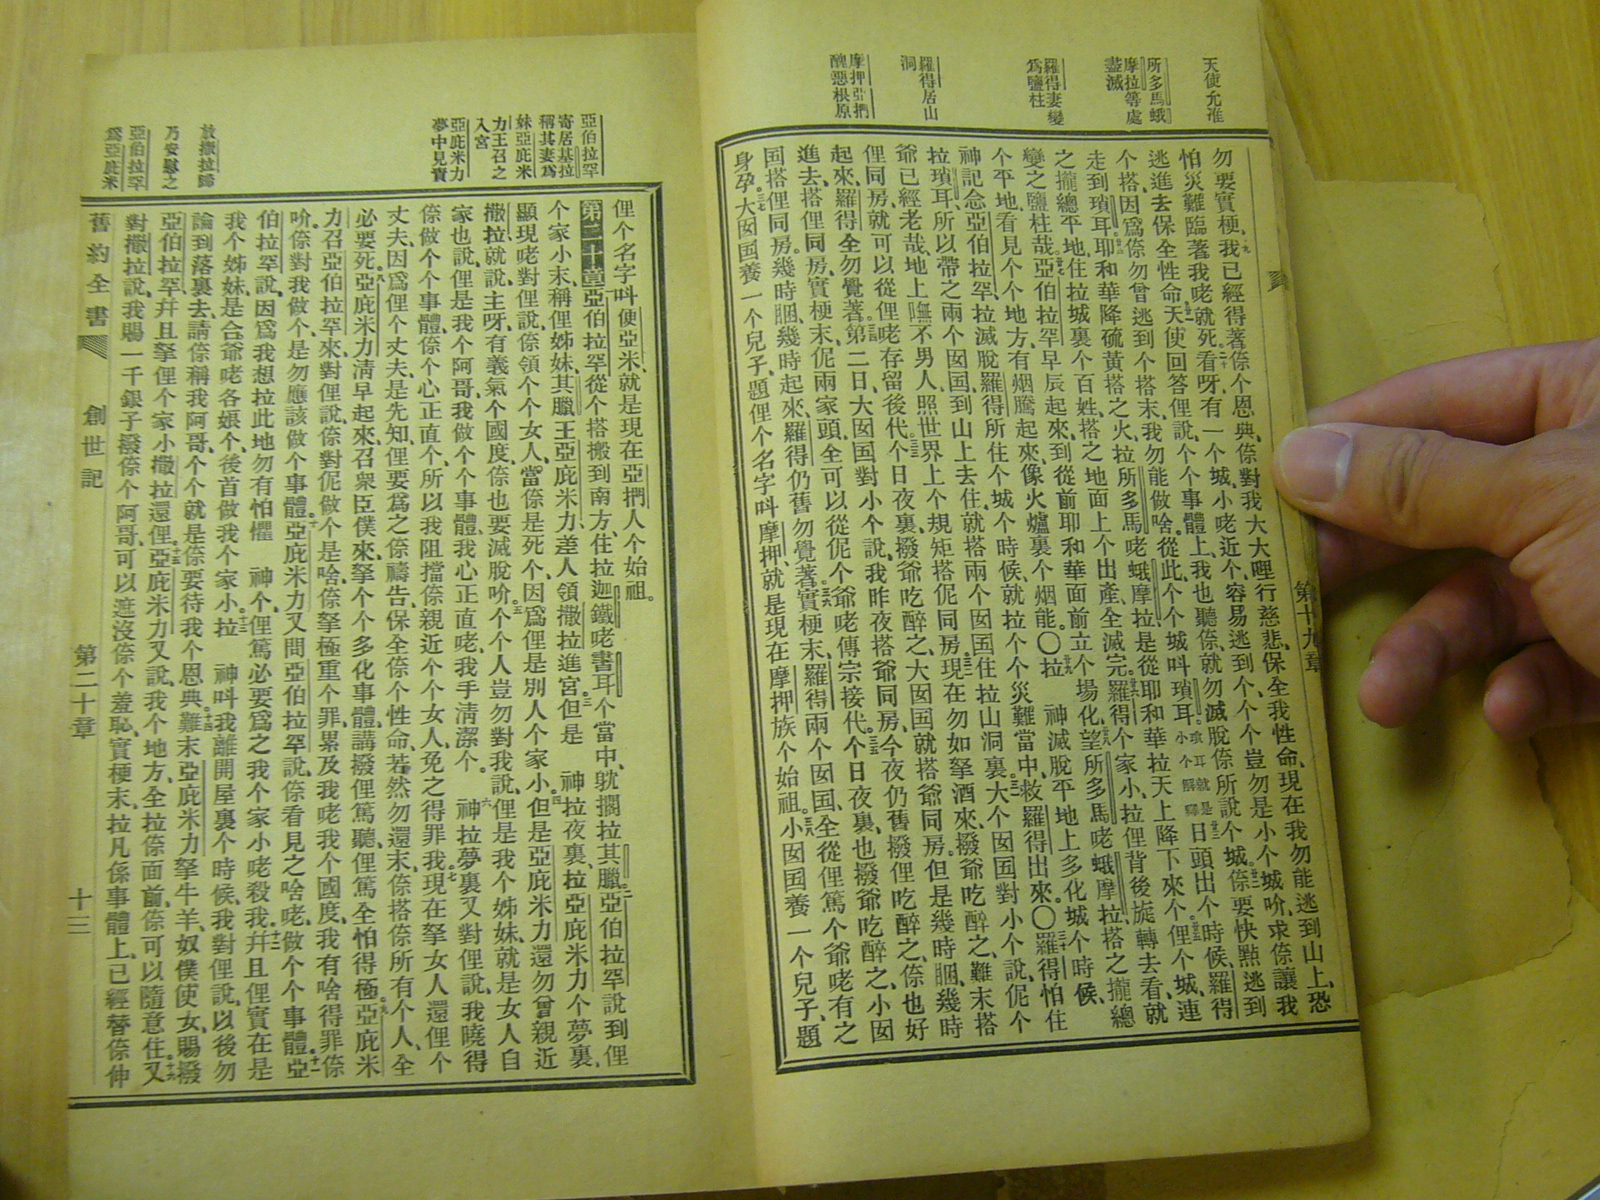 天使允准
所多馬蛾
摩拉等處
盡滅
羅得妻變
爲鹽柱
羅得居山
洞
摩押亞捫
醜惡根原
勿要實梗、我已經得著倷个恩典、倷對我大大哩行慈悲、保全我性命、現在我勿能逃到山上、恐
怕災難臨著我咾就死、看呀、有一个城、小咾近个、容易逃到个、个豈勿是小个城吤、求倷讓我
逃進去保全性命、天使回答俚說、个个事體上、我也聽倷、就勿滅脫倷所說个城、倷要快點逃到
个搭、因爲倷勿曾逃到个搭末、我勿能做啥、從此个个城呌瑣耳、瑣耳就是小个解釋日頭出个時候、羅得
走到瑣耳、耶和華降硫黃搭之火、拉所多馬咾蛾摩拉、是從耶和華拉天上降下來个、俚个城、連
之攏總平地、住拉城裏个百姓、搭之地面上个出產、全滅完、羅得个家小、拉俚背後旋轉去看、就
變之鹽柱哉、亞伯拉罕早辰起來、到從前耶和華面前立个場化、望所多馬咾蛾摩拉、搭之攏總
个平地、看見个个地方、有烟騰起來、像火爐裏个烟能、〇拉 神滅脫平地上多化城个時候、
神記念亞伯拉罕、拉滅脫羅得所住个城个時候、就拉个个災難當中、救羅得出來、〇羅得怕住
拉瑣耳、所以帶之兩个囡国、到山上去住、就搭兩个囡国住拉山洞裏、大个囡国對小个說、伲个
爺已經老哉、地上嘸不男人照世界上个規矩搭伲同房、現在勿如拏酒來、撥爺吃醉之、難末搭
俚同房、就可以從俚咾存留後代、个日夜裏、撥爺吃醉之、大囡国就搭爺同房、但是幾時睏、幾時
起來、羅得全勿覺著、第二日、大囡国對小个說、我昨夜搭爺同房、今夜仍舊撥俚吃醉之、倷也好
進去搭俚同房、實梗末、伲兩家頭、全可以從伲个爺咾傳宗接代、个日夜裏、也撥爺吃醉之、小囡
国搭俚同房、幾時睏、幾時起來、羅得仍舊勿覺著、實梗末、羅得兩个囡国、全從俚篤个爺咾有之
身孕、大囡国養一个兒子、題俚个名字呌摩押、就是現在摩押族个始祖、小囡国養一个兒子、題
第十九章
亞伯拉罕
寄居基拉
稱其妻爲
妹亞庇米
力王召之
入宮
亞庇米力
夢中見責
放撒拉歸
乃安慰之
亞伯拉罕
爲亞庇米
俚个名字呌便亞米、就是現在亞捫人个始祖。
第二十章亞伯拉罕從个搭搬到南方、住拉迦鐵咾書耳个當中、躭擱拉其臘、亞伯拉罕說到俚
个家小末、稱俚姊妹、其臘王亞庇米力、差人領撒拉進宮、但是 神拉夜裏、拉亞庇米力个夢裏、
顯現咾對俚說、倷領个个女人、當倷是死个、因爲俚是別人个家小、但是亞庇米力還勿曾親近
撒拉、就說、主呀、有義氣个國度、倷也要滅脫吤、个个人豈勿對我說、俚是我个姊妹、就是女人自
家也說、俚是我个阿哥、我做个个事體、我心正直咾、我手清潔个、 神拉夢裏又對俚說、我曉得
倷做个个事體、倷个心正直个、所以我阻擋倷親近个个女人、免之得罪我、現在拏女人還俚个
丈夫、因爲俚个丈夫是先知、俚要爲之倷禱告、保全倷个性命、若然勿還末、倷搭倷所有个人、全
必要死、亞庇米力淸早起來、召衆臣僕來、拏个个多化事體講撥俚篤聽、俚篤全怕得極、亞庇米
力召亞伯拉罕來、對俚說、倷對伲做个是啥、倷拏極重个罪、累及我咾我个國度、我有啥得罪倷
吤、倷對我做个、是勿應該做个事體、亞庇米力又問亞伯拉罕說、倷看見之啥咾、做个个事體、亞
伯拉罕說、因爲我想拉此地勿有怕懼 神个、俚篤必要爲之我个家小咾殺我、幷且俚實在是
我个姊妹、是合爺咾各娘个、後首做我个家小、拉 神呌我離開屋裏个時候、我對俚說、以後勿
論到落裏去、請倷稱我阿哥、个个就是倷要待我个恩典、難末亞庇米力拏牛羊奴僕使女、賜撥
亞伯拉罕、幷且拏俚个家小撒拉還俚、亞庇米力又說、我个地方、全拉倷面前、倷可以隨意住、又
對撒拉說、我賜一千銀子撥倷个阿哥、可以遮沒倷个羞恥、實梗末、拉凡係事體上、已經替倷伸
舊約全書 創世記 第二十章 十三